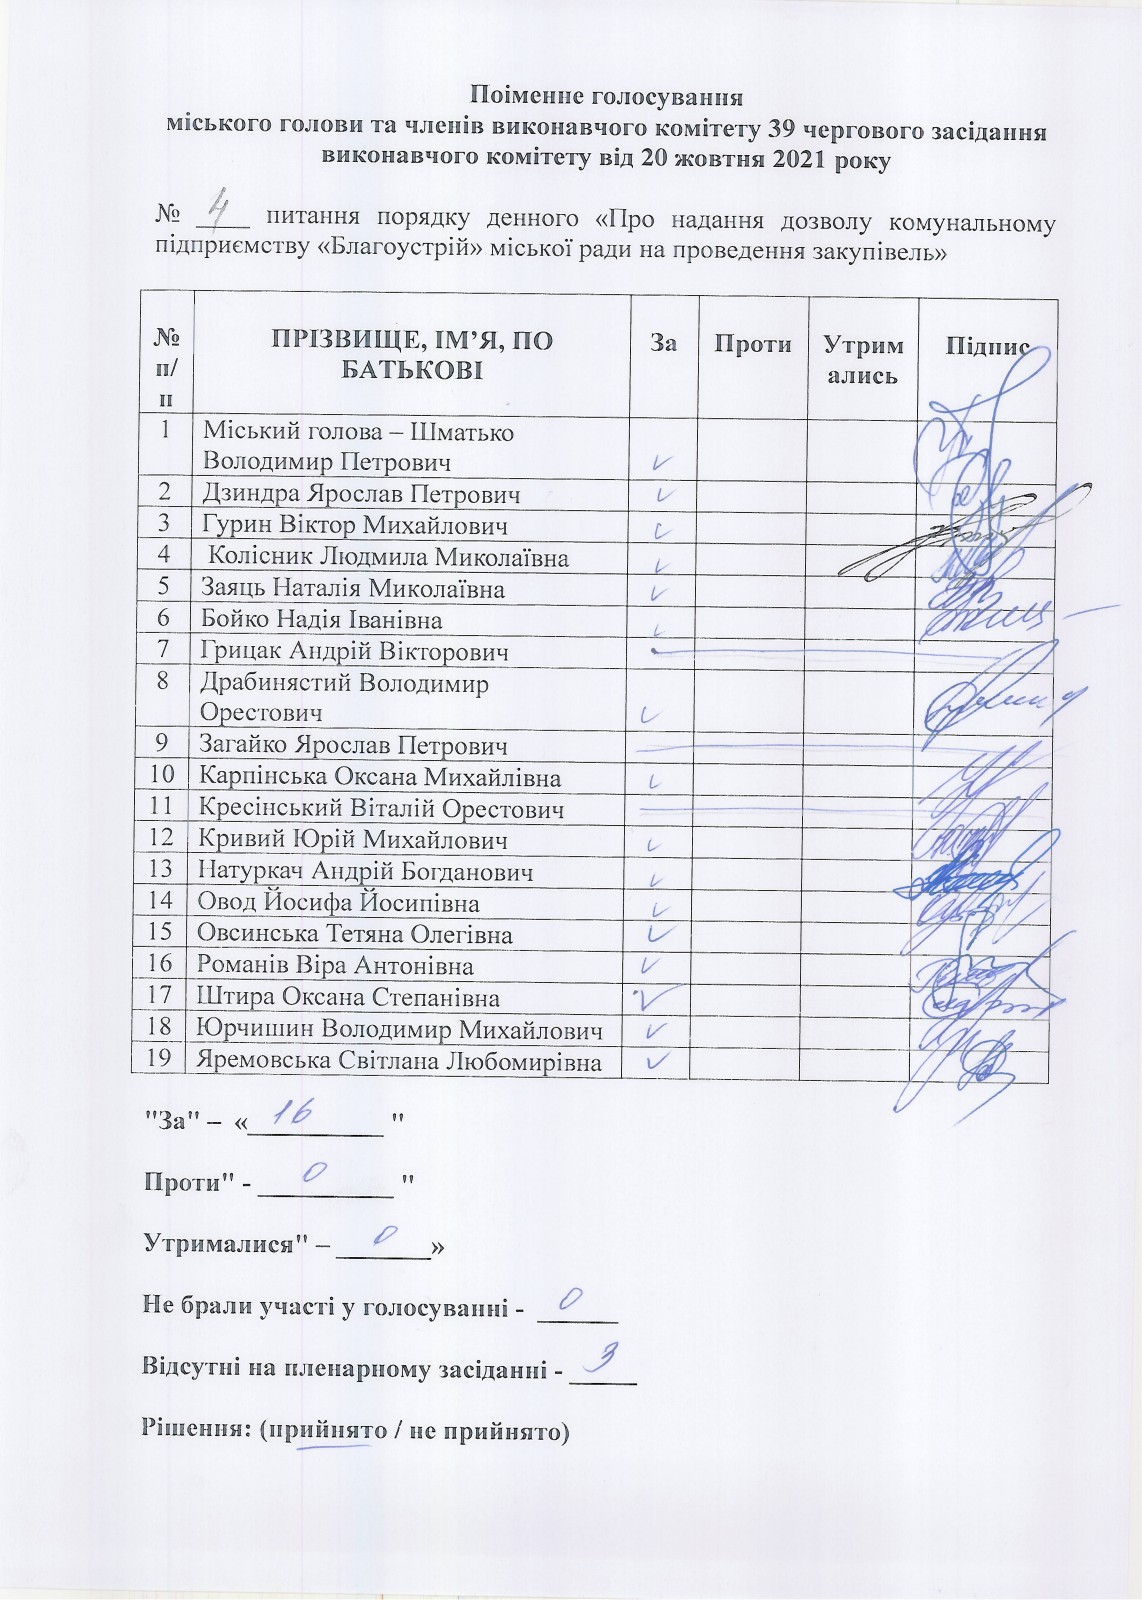 Поіменне голосування
міського голови та членів виконавчого комітету 39 чергового засідання
виконавчого комітету від 20 жовтня 2021 року
№ 4 питання порядку денного «Про надання дозволу комунальному
підприємству «Благоустрій» міської ради на проведення закупівель»
№ п/п ПРІЗВИЩЕ, ІМ’Я, ПО БАТЬКОВІ За Проти Утрим ались Підпис
1 Міський голова – Шматько
Володимир Петрович
2 Дзиндра Ярослав Петрович
3 Гурин Віктор Михайлович
4 Колісник Людмила Миколаївна
5 Заяць Наталія Миколаївна
6 Бойко Надія Іванівна
7 Грицак Андрій Вікторович
8 Драбинястий Володимир
Орестович
9 Загайко Ярослав Петрович
10 Карпінська Оксана Михайлівна
11 Кресінський Віталій Орестович
12 Кривий Юрій Михайлович
13 Натуркач Андрій Богданович
14 Овод Йосифа Йосипівна
15 Овсинська Тетяна Олегівна
16 Романів Віра Антонівна
17 Штира Оксана Степанівна
18 Юрчишин Володимир Михайлович
19 Яремовська Світлана Любомирівна
"За" – « 16 "
Проти" - 0 "
Утрималися" – 0 »
Не брали участі у голосуванні - 0
Відсутні на пленарному засіданні - 3
Рішення: (прийнято / не прийнято)